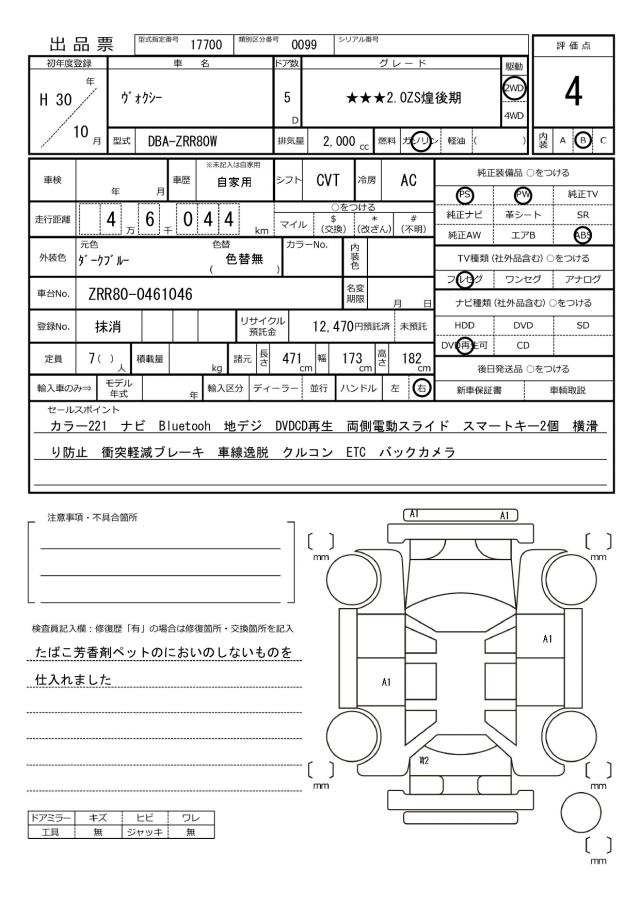 出品票 型式指定番号 17700 類別区分番号 0099 シリアル番号
評価点
4
内装 A B C
初年度登録 車名 ドア数 グレード 駆動
H 30 年 10 月
ヴォクシー
5 D
★★★2.0ZS煌後期
2WD
4WD
型式 DBA-ZRR80W 排気量 2,000 cc 燃料 ガソリン 軽油 ( )
車検 年 月 車歴 ※未記入は自家用 自家用 シフト CVT 冷房 AC
走行距離 4 万 6 千 0 4 4 km
○をつける
マイル $(交換) *(改ざん) #(不明)
外装色 元色 ダークブルー 色替 ( 色替無 ) カラーNo. 内装色
車台No. ZRR80-0461046 名変期限 月 日
登録No. 抹消 リサイクル預託金 12,470円預託済 未預託
定員 7( ) 人 積載量 kg 諸元 長さ 471 cm 幅 173 cm 高さ 182 cm
輸入車のみ⇒ モデル年式 年 輸入区分 ディーラー 並行 ハンドル 左 右
純正装備品 ○をつける
PS PW 純正TV
純正ナビ 革シート SR
純正AW エアB ABS
TV種類 (社外品含む) ○をつける
フルセグ ワンセグ アナログ
ナビ種類 (社外品含む) ○をつける
HDD DVD SD
DVD再生可 CD
後日発送品 ○をつける
新車保証書 車輌取説
セールスポイント
カラー221 ナビ Bluetooh 地デジ DVDCD再生 両側電動スライド スマートキー2個 横滑
り防止 衝突軽減ブレーキ 車線逸脱 クルコン ETC バックカメラ
注意事項・不具合箇所
検査員記入欄：修復歴「有」の場合は修復箇所・交換箇所を記入
たばこ芳香剤ペットのにおいのしないものを
仕入れました
ドアミラー キズ ヒビ ワレ
工具 無 ジャッキ 無
A1 A1
mm mm
A1
A1
W2
mm mm
mm